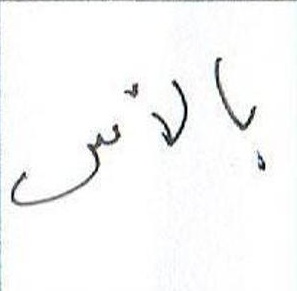 بالأمس